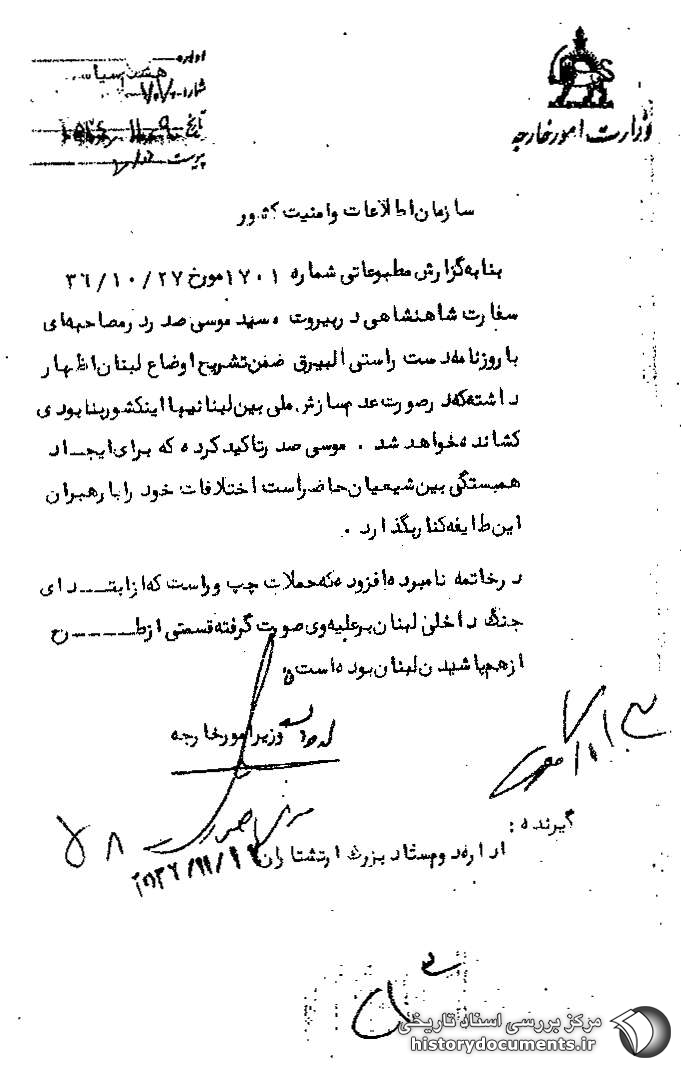 وزارت امور خارجه
اداره
شماره
تاریخ
پیوست
سازمان اطلاعات و امنیت کشور
بنا به گزارش مطبوعاتی شماره ۱۷۰۱ مورخ ۳۶/۱۰/۲۷
سفارت شاهنشاهی در بیروت ، سید موسی صدر در مصاحبه‌ای
با روزنامه دست راستی البیرق ضمن تشریح اوضاع لبنان اظهار
داشته که در صورت عدم سازش ملی بین لبنانیها اینکشور بنابودی
کشانده خواهد شد . موسی صدر تاکید کرده که برای ایجاد
همبستگی بین شیعیان حاضر است اختلافات خود را با رهبران
این طایفه کنار بگذارد .
در خاتمه نامبرده افزوده که حملات چپ و راست که از ابتدای
جنگ داخلی لبنان بر علیه وی صورت گرفته قسمتی از طرح
از هم پاشیدن لبنان بوده است
وزیر امور خارجه
گیرنده :
اداره دوم ستاد بزرگ ارتشتاران
۲۵۳۶/۱۱/
مرکز بررسی اسناد تاریخی
historydocuments.ir